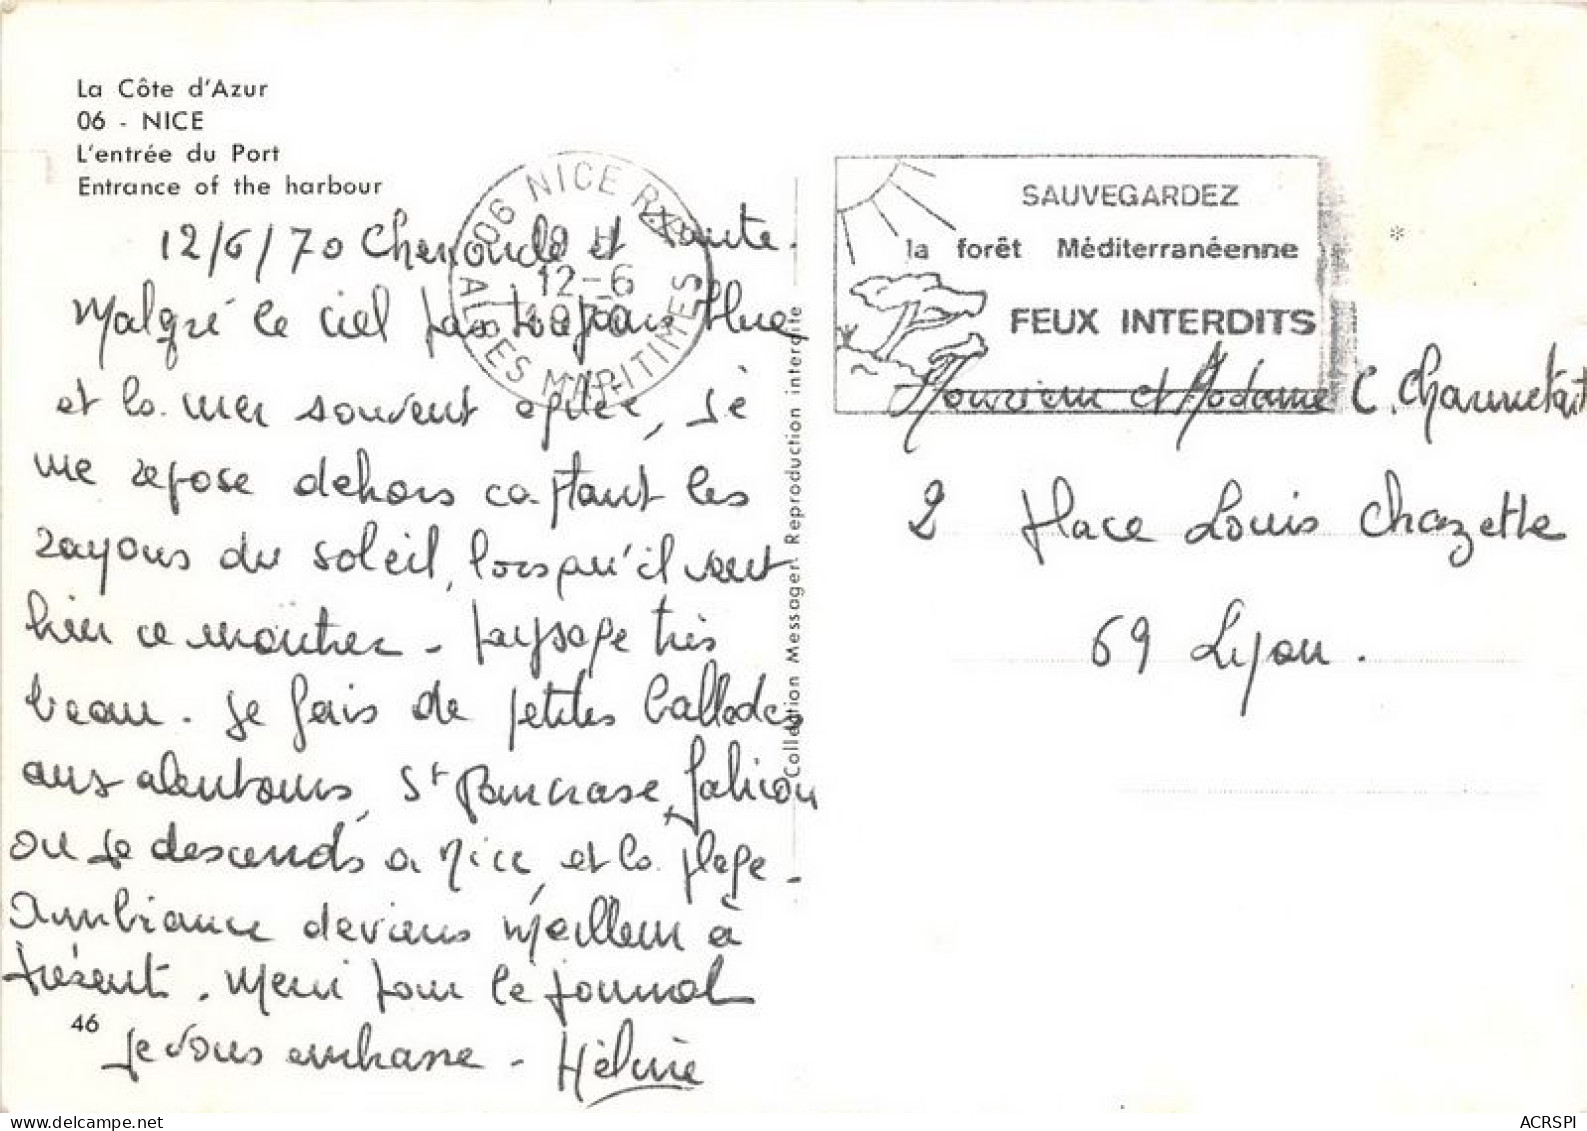 La Côte d'Azur
06 - NICE
L'entrée du Port
Entrance of the harbour
12/6/70 et
Malgré le ciel pas toujours bleu
et la mer souvent agitée, je
me repose dehors captant les
rayons du soleil, lorsqu'il veut
bien se montrer - paysage très
beau. Je fais de petites ballades
aux alentours, St Pancrase, Falicon
ou je descends a Nice, et la plage -
Ambiance deviens meilleur à
présent. Merci pour le journal
46
Je vous embrasse -
06 NICE R.P.
ALPES MARITIMES
12-6
1970
Collection Messager Reproduction interdite
SAUVEGARDEZ
la forêt Méditerranéenne
FEUX INTERDITS
*
Monsieur et Madame C.
2 place Louis Chazette
69 Lyon.
ACRSPI